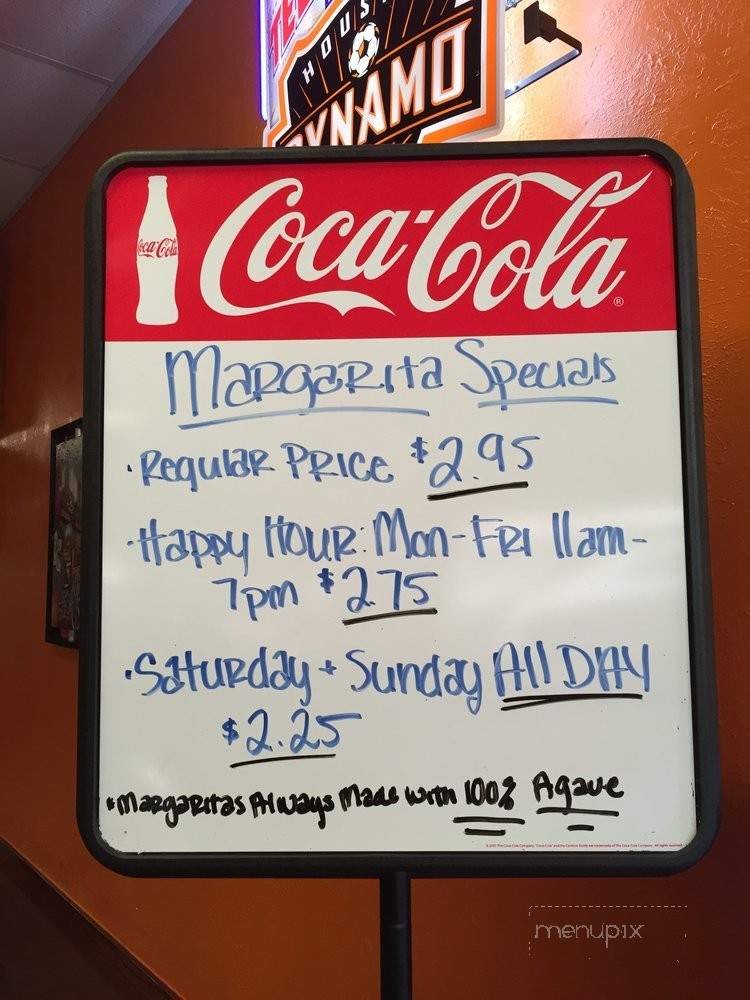 HOUS
DYNAMO
Coca-Cola
Coca-Cola ®
Margarita Specials
· Regular Price $2.95
· Happy Hour: Mon-Fri 11am-
7pm $2.75
· Saturday + Sunday All DAY
$2.25
* Margaritas Always Made with 100% Agave
menupix